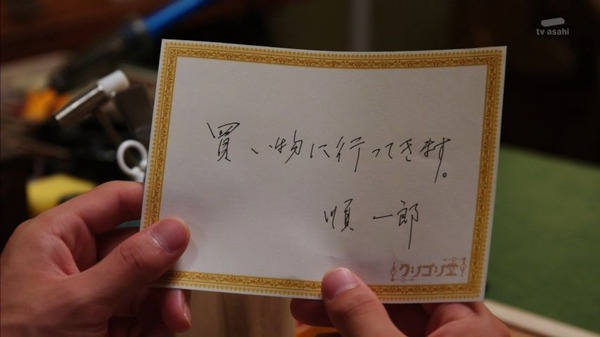 tv asahi
買い物に行ってきます。
順一郎
クリゴリ堂